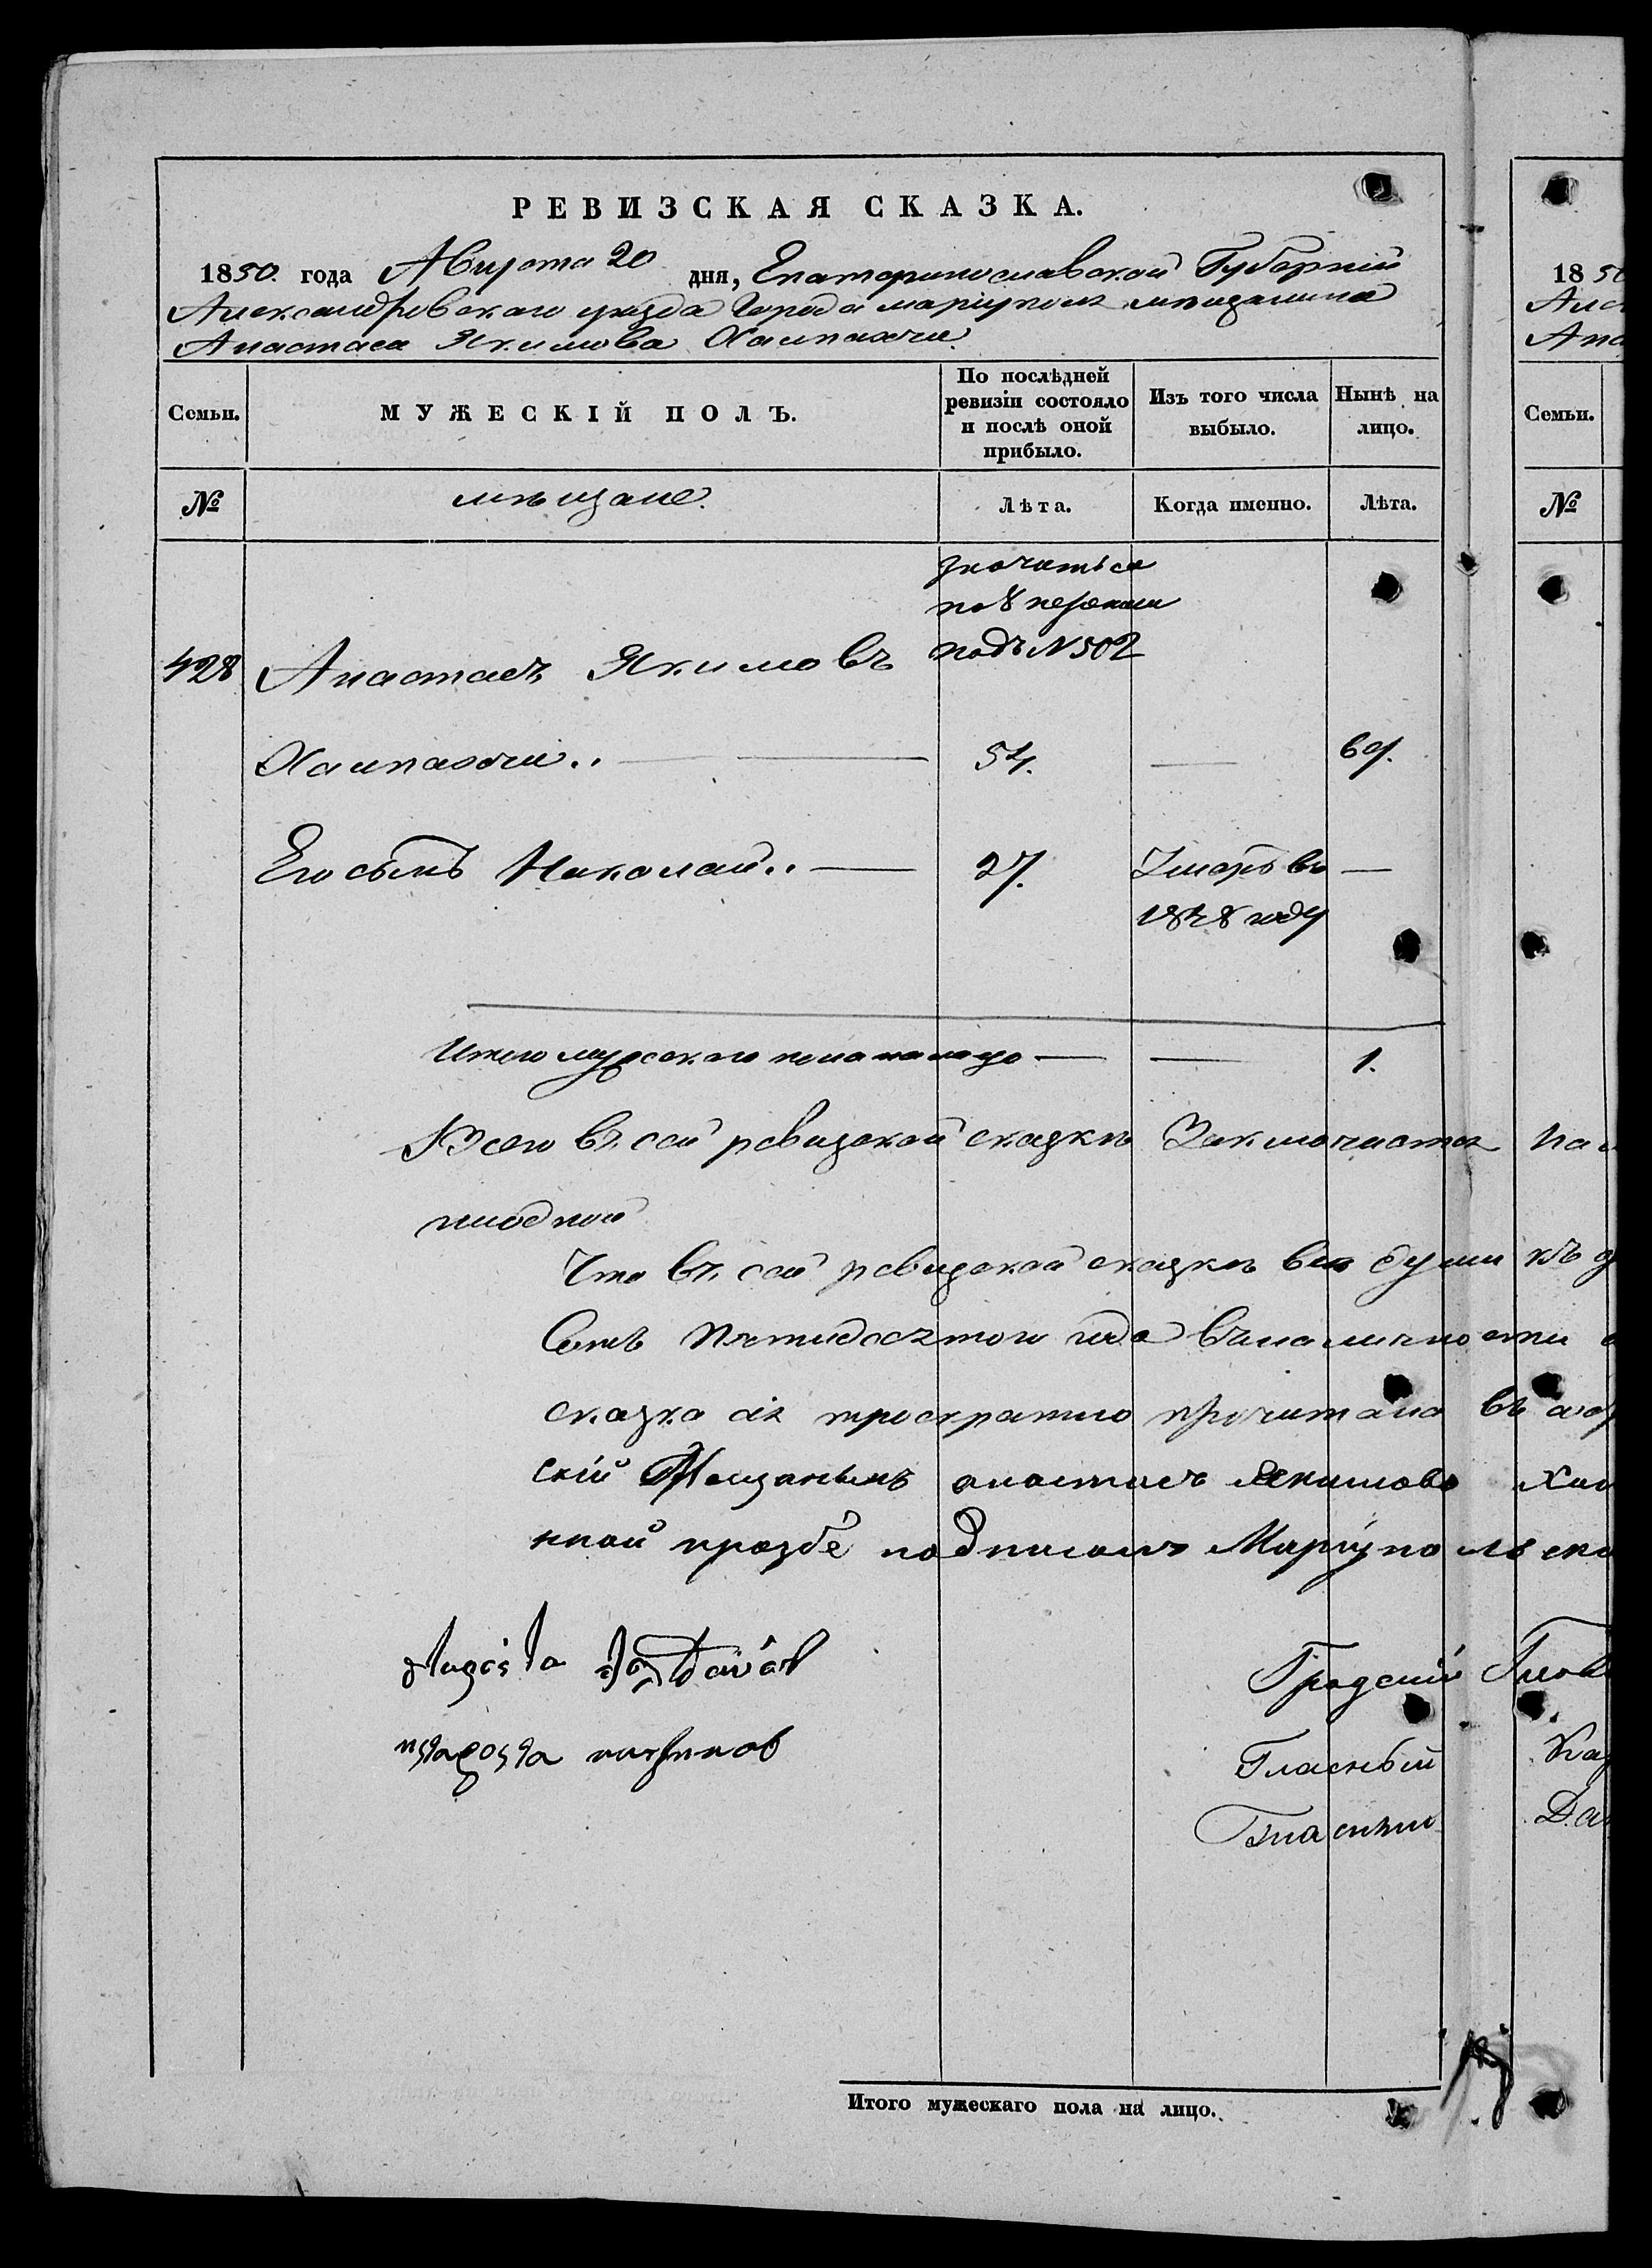 РЕВИЗСКАЯ СКАЗКА.
1850. года Августа 20 дня, Екатеринославской Губерніи
Александровскаго уезда Города мариуполя мещанина
Анастаса Якимова Хампахчи.
Семьи. МУЖЕСКІЙ ПОЛЪ. По послѣдней ревизіи состояло и послѣ оной прибыло. Изъ того числа выбыло. Нынѣ на лицо.
№ мѣщане. Лѣта. Когда именно. Лѣта.
значиться
по 8
подъ N 502
428 Анастасъ Якимовъ
Хампахчи.. — 54. — 69.
Его сынъ Николай.. — 27. Умеръ въ —
году
Итого мужескаго пола на лицо — — 1.
Всего въ сей ревизской сказкѣ Заключается на
одной
Что въ сей ревизской сказкѣ все души къ
Сотъ Пятидесятого года въ наличности
сказка сія троекратно прочитана въ
скій Мещанинъ анастасъ Якимовъ Хам
ной прозбе подписалъ Мариупольска
Градскій Голов
староста
Гласный Кар
Гласный Да
Итого мужескаго пола на лицо.
1850
Але
Ана
Семьи.
№